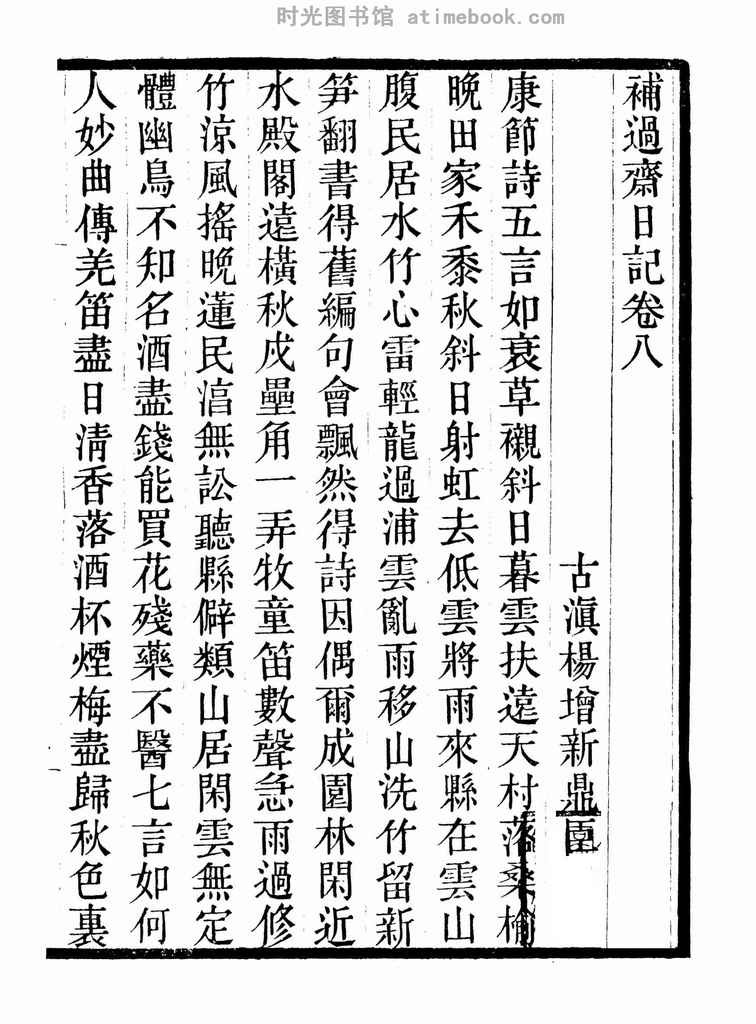 时光图书馆 atimebook.com
補過齋日記卷八
古滇楊增新鼎園
康節詩五言如衰草襯斜日暮雲扶遠天村落桑榆
晚田家禾黍秋斜日射虹去低雲將雨來縣在雲山
腹民居水竹心雷輕龍過浦雲亂雨移山洗竹留新
笋翻書得舊編句會飄然得詩因偶爾成園林閑近
水殿閣遠橫秋戍壘角一弄牧童笛數聲急雨過修
竹涼風搖晚蓮民淳無訟聽縣僻類山居閑雲無定
體幽鳥不知名酒盡錢能買花殘藥不醫七言如何
人妙曲傳羌笛盡日清香落酒杯煙梅盡歸秋色裏